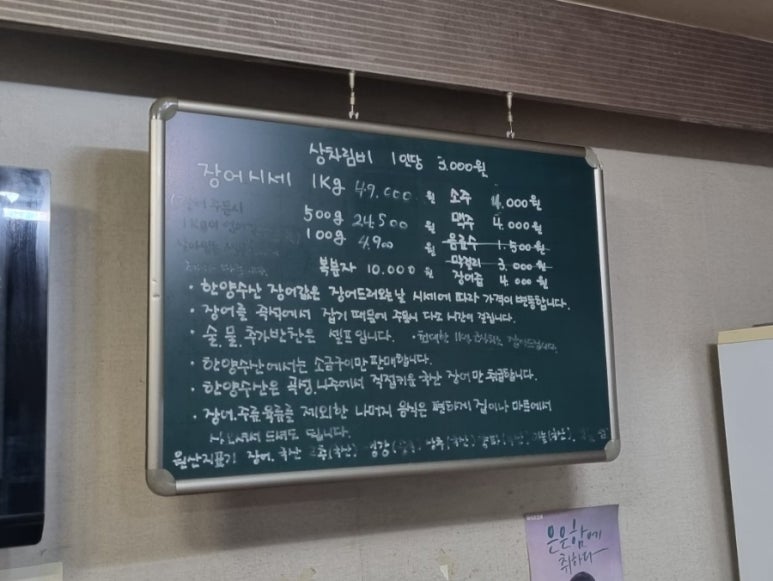 상차림비 1인당 3.000원
장어시세 1Kg 49.000원 소주 4.000원
장어 주문시 500g 24.500원 맥주 4.000원
1Kg에 100g 4.900원 음료수 1.500원
막걸리 3.000원
복분자 10.000원 장어즙 4.000원
· 한양수산 장어값은 장어드러오는날 시세에 따라 가격이 변동합니다.
· 장어를 즉석에서 잡기 때문에 주문시 다소 시간이 걸립니다.
· 술, 물, 추가반찬은 셀프입니다.
· 한양수산에서는 소금구이만 판매합니다.
· 한양수산은 곡성, 나주에서 직접키운 국산 장어만 취급합니다.
· 장어, 주류, 육류를 제외한 나머지 음식은 편하게 집이나 마트에서
드셔도 됩니다.
원산지표기 장어, 국산 고추(국산) 생강 상추(국산)
은은함에
취하다